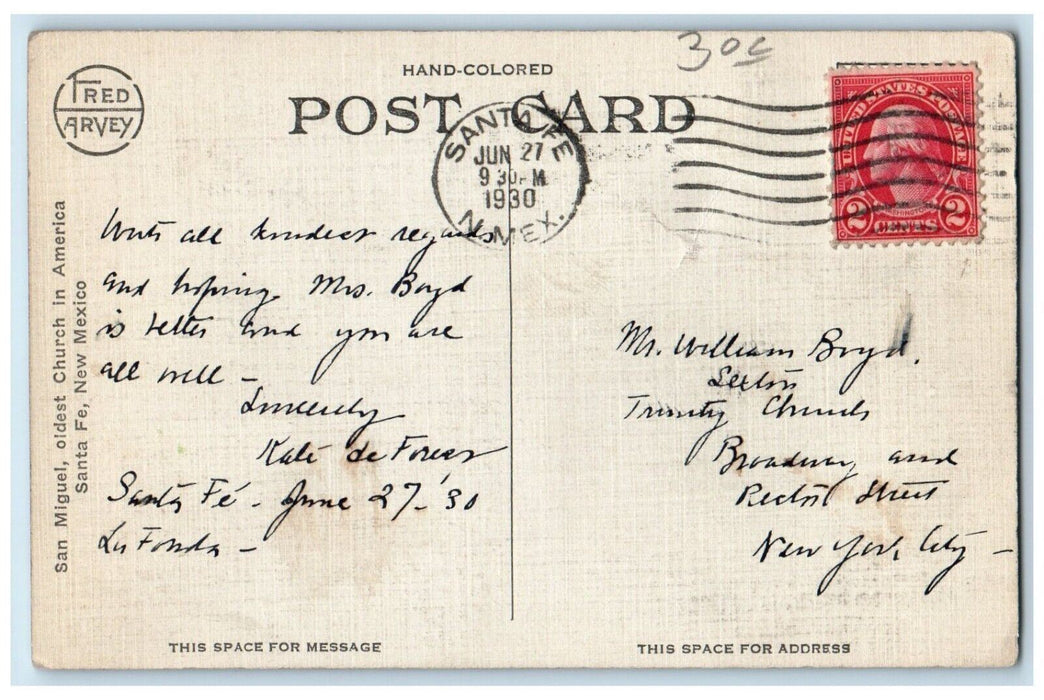 30¢
HAND-COLORED
POST CARD
FRED
HARVEY
SANTA FE
JUN 27
9 30 PM
1930
N. MEX.
UNITED STATES POSTAGE
WASHINGTON
2 CENTS 2
San Miguel, oldest Church in America
Santa Fe, New Mexico
With all kindest regards
and hoping Mrs. Boyd
is better and you are
all well –
Sincerely
Kate de Forest
Santa Fé - June 27-'30
La Fonda –
Mr. William Boyd,
Sexton
Trinity Church
Broadway and
Rector Street
New York City –
THIS SPACE FOR MESSAGE
THIS SPACE FOR ADDRESS